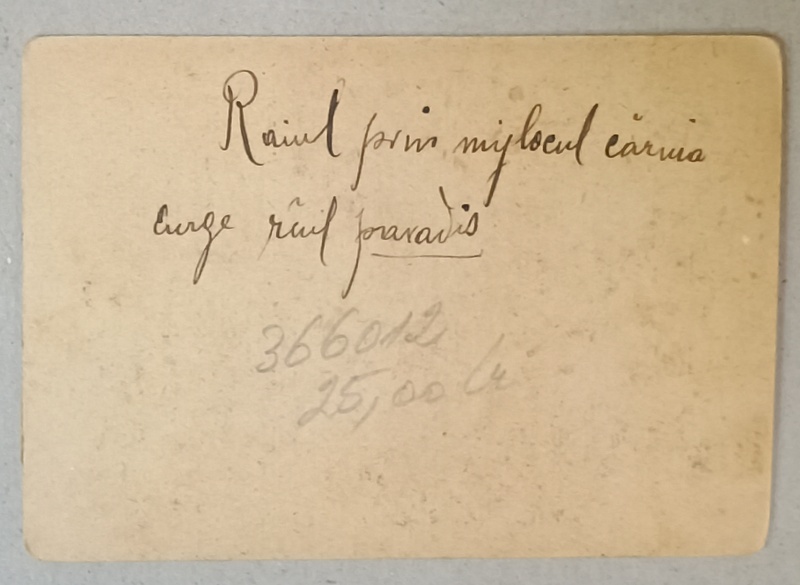 Raiul prin mijlocul căruia
curge rîul paradis
366012
25,00 lei